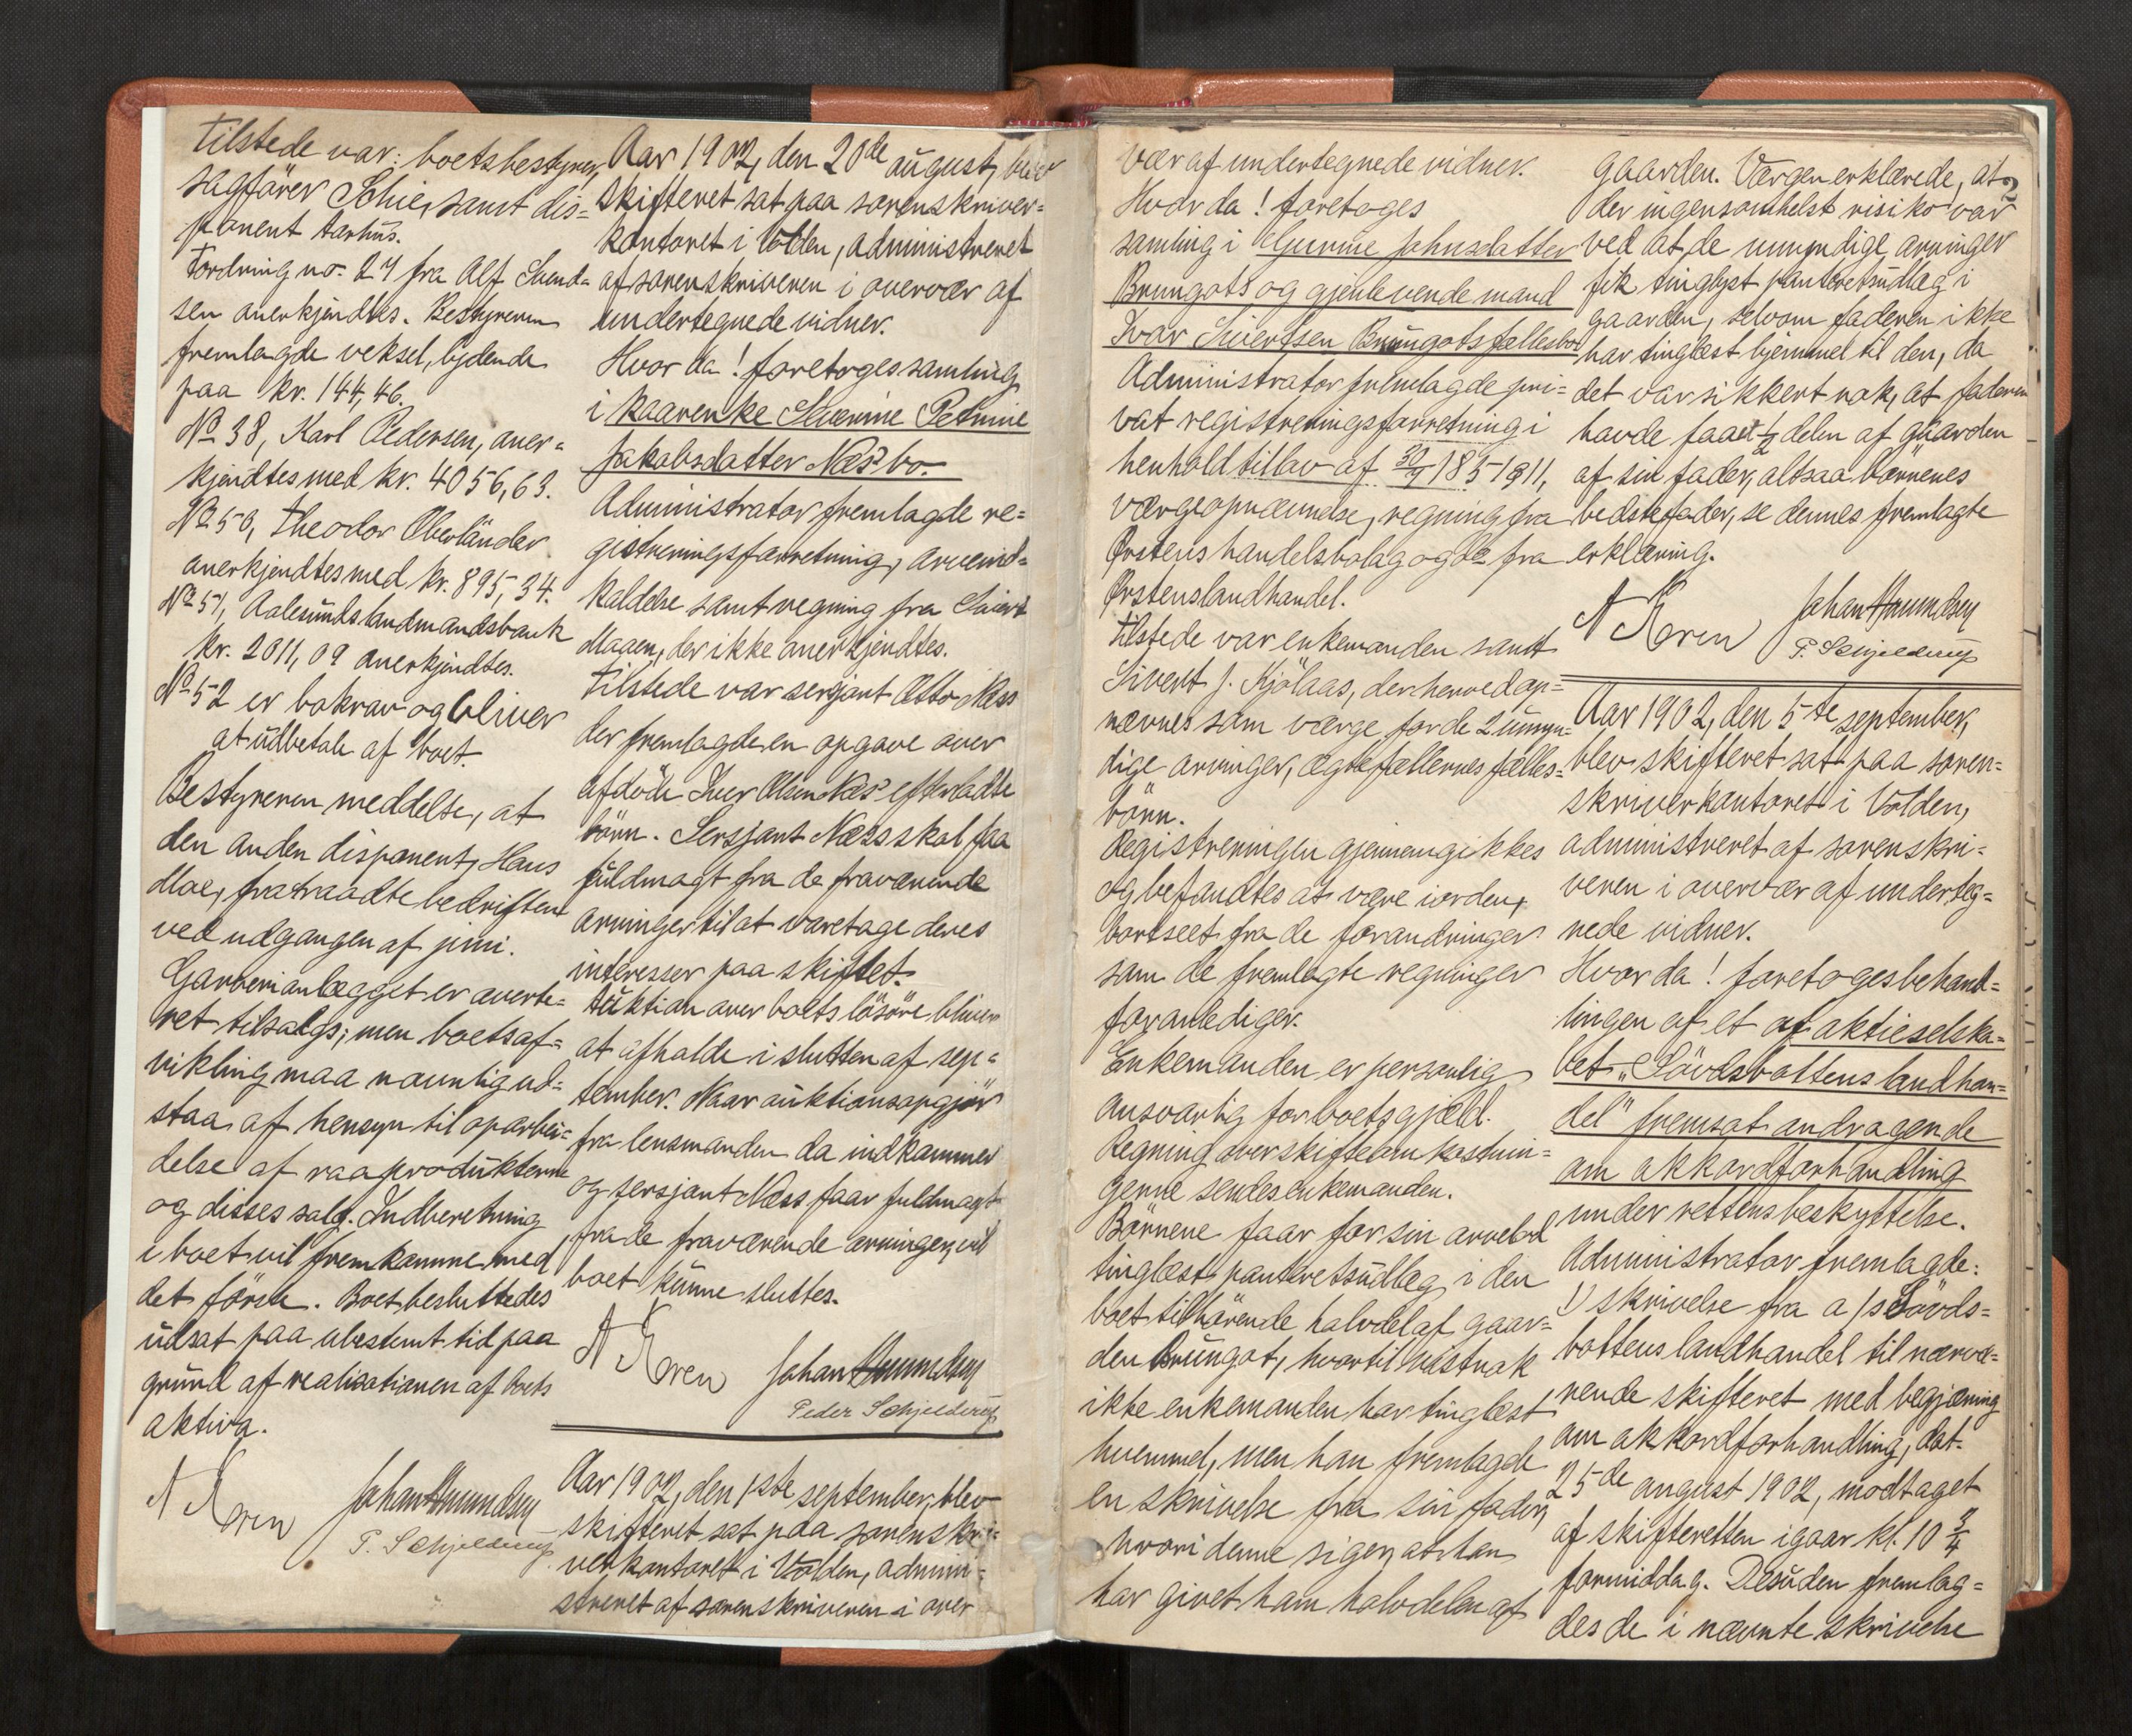 Tilstede var: boetsbestyrer,
sagfører Schie, samt dis=
ponent Aarhus.
Fordring no. 27 fra Alf Svend=
sen anerkjendtes. Bestyreren
fremlagde veksel, lydende
paa kr. 144,46.
No 38, Karl Pedersen, aner=
kjendtes med kr. 4056,63.
No 50, Theodor Oberländer
anerkjendtes med kr. 895,34.
No 51, Aalesunds landmandsbank
kr. 2011,09 anerkjendtes.
No 52 er bokrav og bliver
at udbetale af boet.
Bestyreren meddelte, at
den anden disponent, Hans
Moe, fratraadte bedriften
ved udgangen af juni.
Garverianlægget er averte=
ret tilsalgs; men boetsaf=
vikling maa navnlig ud=
staa af hensyn til oparbei=
delse af raaprodukterne
og disses salg. Indberetning
i boet vil fremkomme med
det første. Boet besluttedes
udsat paa ubestemt tid paa
grund af realisationen af boets
aktiva.
N Koren Johan Amundsen
P. Schjelderup
Aar 1902, den 20de august, blev
skifteret sat paa sorenskriver=
kontoret i Volden, administreret
af sorenskriveren i overvær af
undertegnede vidner.
Hvor da! foretoges samling
i kaarenke Severine Petrine
Jakobsdatter Næs' bo.
Administrator fremlagde re=
gistreringsforretning, arveind=
kaldelse samt regning fra Sivert
Maaen, der ikke anerkjendtes.
Tilstede var sersjant Otto Næss
der fremlagde en opgave over
afdøde Iver Olsen Næs' efterladte
børn. Sersjant Næss skal faa
fuldmagt fra de fraværende
arvinger til at varetage deres
interesser paa skiftet.
Auktion over boets løsøre bliver
at afholde i slutten af sep=
tember. Naar auktionsopgjør
fra lensmanden da indkommer
og sersjant Næss faar fuldmagt
fra de fraværende arvinger, vil
boet kunne sluttes.
N Koren Johan Amundsen
Peder Schjelderup
Aar 1902, den 1ste september, blev
skifteret sat paa sorenskri=
verkontoret i Volden, admini=
streret af sorenskriveren i over
vær af undertegnede vidner.
Hvor da! foretoges
samling i Gurine Johnsdatter
Brungots og gjenlevende mand
Ivar Sivertsen Brungots fællesbo
Administrator fremlagde pri=
vat registreringsforretning i
henhold til lov af 30/7 1851 § 11,
værgeopnævnelse, regning fra
Ørstens handelsbolag og do fra
Ørstens landhandel.
Tilstede var enkemanden samt
Sivert J. Kjølaas, der herved op=
nævnes som værge for de 2 umyn=
dige arvinger, ægtefællernes fælles=
børn.
Registreringen gjennemgikkes
og befandtes at være iorden,
bortseet fra de forandringer
som de fremlagte regninger
foranlediger.
Enkemanden er personlig
ansvarlig for boets gjæld.
Regning over skifteomkostnin=
gerne sendes enkemanden.
Børnene faar for sin arvelod
tinglæst panteretsudlæg i den
boet tilhørende halvdel af gaar=
den Brungot, hvortil vistnok
ikke enkemanden har tinglæst
hjemmel, men han fremlagde
en skrivelse fra sin fader,
hvori denne siger, at han
har givet ham halvdelen af
2
gaarden. Værgen erklærede, at
der ingensomhelst risiko var
ved at de umyndige arvinger
fik tinglyst panteretsudlæg i
gaarden, selvom faderen ikke
har tinglæst hjemmel til den, da
det var sikkert nok, at faderen
havde faaet 1/2 delen af gaarden
af sin fader, altsaa børnenes
bedstefader, se dennes fremlagte
erklæring.
N Koren Johan Amundsen
P. Schjelderup
Aar 1902, den 5te september,
blev skifteret sat paa soren=
skriverkontoret i Volden,
administreret af sorenskri=
veren i overvær af underteg=
nede vidner.
Hvor da! foretoges behand=
lingen af et af aktieselska=
bet „Søvdsbottens landhan=
del" fremsat andragende
om akkordforhandling
under rettens beskyttelse.
Administrator fremlagde:
1) skrivelse fra a/s Søvds=
bottens landhandel til nærvæ=
rende skifteret med begjæring
om akkordforhandling, dat.
25de august 1902, modtaget
af skifteretten igaar kl. 10 3/4
formiddag. Desuden fremlag=
des de i nævnte skrivelse